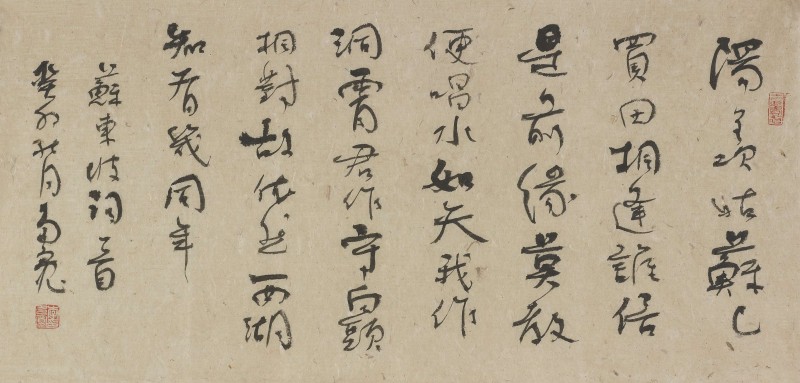 陽羨姑蘇已
買田相逢誰信
是前緣莫教
便唱水如天我作
洞霄君作守白頭
相對故依然西湖
知有幾同年
蘇東坡詞一首
癸卯秋月